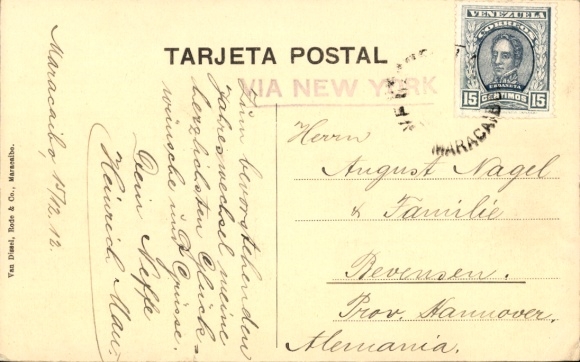 TARJETA POSTAL
VIA NEW YORK
VENEZUELA
CORREOS
URDANETA
15 CENTIMOS 15
MARACAIB
Maracaibo, 15/12. 12.
Zum bevorstehenden
Jahreswechsel meine
herzlichsten Glück-
wünsche und Grüsse.
Dein Neffe
Heinrich
Herrn
August Nagel
& Familie
Bevensen.
Prov. Hannover.
Alemania.
Van Dissel, Rode & Co., Maracaibo.